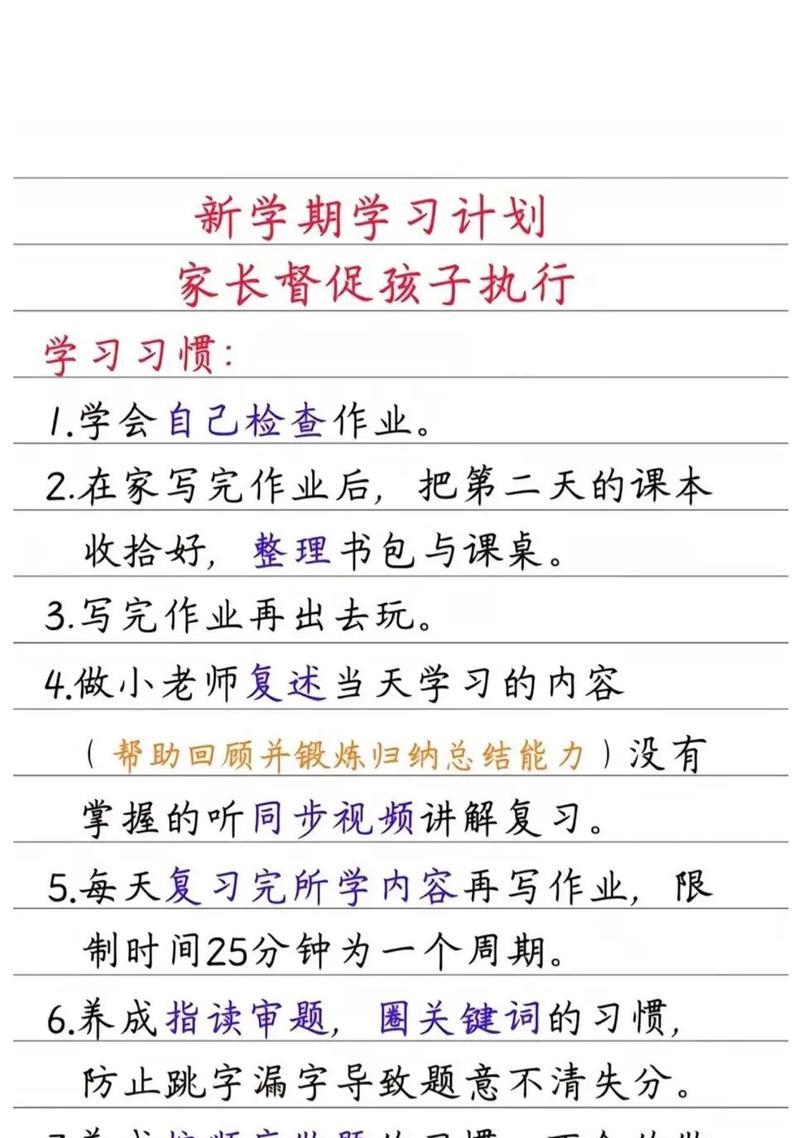 新学期学习计划
家长督促孩子执行
学习习惯:
1.学会自己检查作业。
2.在家写完作业后, 把第二天的课本
收拾好, 整理书包与课桌。
3.写完作业再出去玩。
4.做小老师复述当天学习的内容
(帮助回顾并锻炼归纳总结能力)没有
掌握的听同步视频讲解复习。
5.每天复习完所学内容再写作业, 限
制时间25分钟为一个周期。
6.养成指读审题, 圈关键词的习惯,
防止跳字漏字导致题意不清失分。